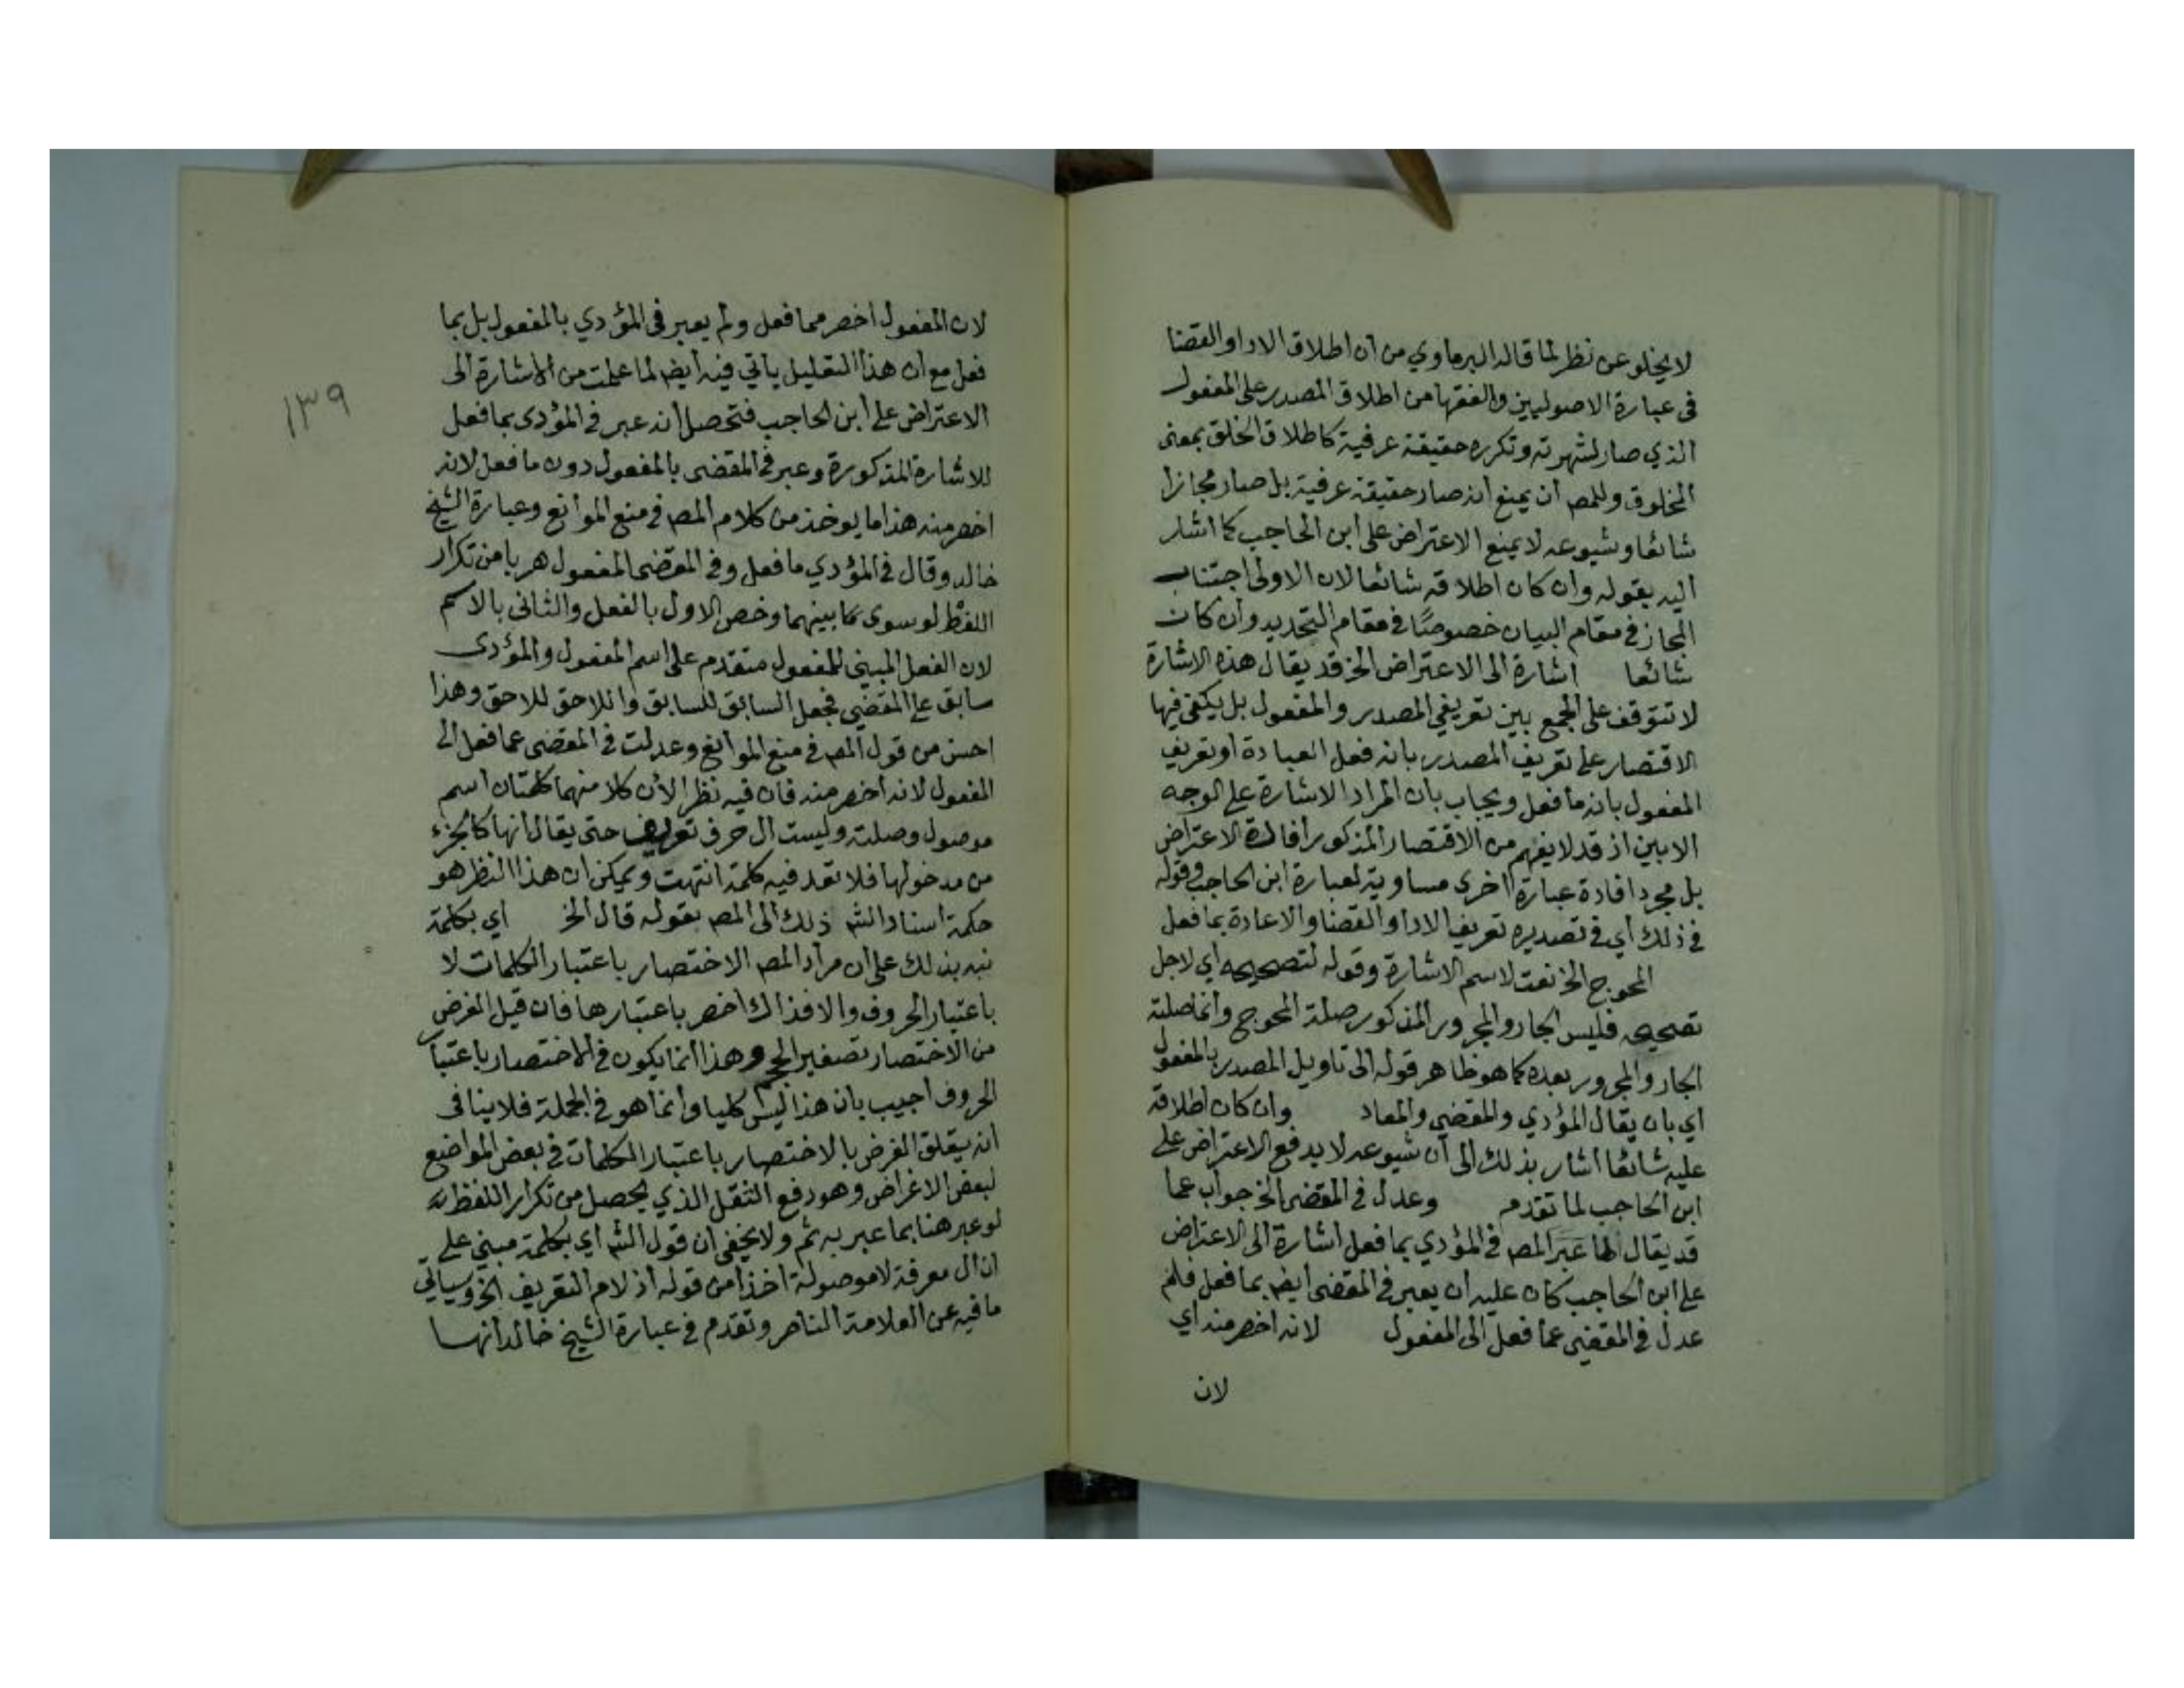 لا يخلو عن نظر لما قاله البرماوي من ان اطلاق الادا والقضا
في عبارة الاصوليين والفقها من اطلاق المصدر على المفعول
الذي صار لشهرته وتكرره حقيقة عرفية كاطلاق الخلق بمعنى
المخلوق وللمص أن يمنع انه صار حقيقة عرفية بل صار مجازا
شائعا وشيوعه لا يمنع الاعتراض على ابن الحاجب كما اشار
اليه بقوله وان كان اطلاقه شائعا لان الاولى اجتناب
المجاز في مقام البيان خصوصًا في مقام التحديد وان كان
شائعا اشارة الى الاعتراض الخ قد يقال هذه الاشارة
لا تتوقف على الجمع بين تعريفي المصدر والمفعول بل يكفي فيها
الاقتصار على تعريف المصدر بانه فعل العبادة او تعريف
المفعول بانه ما فعل ويجاب بأن المراد الاشارة على الوجه
الابين اذ قد لا يفهم من الاقتصار المذكور افادة الاعتراض
بل مجرد افادة عبارة اخرى مساوية لعبارة ابن الحاجب وقوله
في ذلك أي في تصديره تعريف الادا والقضا والاعادة بما فعل
المحوج الخ نعت لاسم الاشارة وقوله لتصحيحه أي لاجل
تصحيحه فليس الجار والمجرور المذكور صلة المحوج وانما صلته
الجار والمجرور بعده كما هو ظاهر قوله الى تاويل المصدر بالمفعول
اي بان يقال المؤدي والمقضي والمعاد وان كان اطلاقه
عليه شائعا أشار بذلك الى أن شيوعه لا يدفع الاعتراض على
ابن الحاجب لما تقدم وعدل في المقضي الخ جواب عما
قد يقال لما عبر المص في المؤدي بما فعل اشارة الى الاعتراض
على ابن الحاجب كان عليه أن يعبر في المقضي أيضا بما فعل فلم
عدل في المقضي عما فعل الى المفعول لانه اخصر منه أي
لان
١٣٩
لان المفعول اخصر مما فعل ولم يعبر في المؤدي بالمفعول بل بما
فعل مع أن هذا التعليل يأتي فيه أيضا لما علمت من الاشارة الى
الاعتراض على ابن الحاجب فتحصل أنه عبر في المؤدى بما فعل
للاشارة المذكورة وعبر في المقضى بالمفعول دون ما فعل لانه
اخصر منه هذا ما يوخذ من كلام المص في منع الموانع وعبارة الشيخ
خالد وقال في المؤدي ما فعل وفي المقضى المفعول هربا من تكرار
اللفظ لو سوى ما بينهما وخص الاول بالفعل والثانى بالاسم
لان الفعل المبني للمفعول متقدم على اسم المفعول والمؤدى
سابق على المقضي فجعل السابق للسابق واللاحق للاحق وهذا
احسن من قول المص في منع الموانع وعدلت في المقضى عما فعل الى
المفعول لانه أخصر منه فان فيه نظرا لأن كلا منهما كلمتان اسم
موصول وصلته وليست ال حرف تعريف حتى يقال انها كالجزء
من مدخولها فلا تعد فيه كلمة انتهت ويمكن ان هذا النظر هو
حكمة اسناد الش ذلك الى المص بقوله قال الخ اي بكلمة
نبه بذلك على ان مراد المص الاختصار باعتبار الكلمات لا
باعتبار الحروف والا فذاك اخصر باعتبارها فان قيل الغرض
من الاختصار تصغير الحجم وهذا انما يكون في الاختصار باعتبار
الحروف أجيب بان هذا ليس كليا وانما هو في الجملة فلا ينافى
انه يتعلق الغرض بالاختصار باعتبار الكلمات في بعض المواضع
لبعض الاغراض وهو دفع الثقل الذي يحصل من تكرار اللفظ
لو عبر هنا بما عبر به ثم ولا يخفى ان قول الش أي بكلمة مبني على
ان ال معرفة لا موصولة اخذا من قوله اذ لام التعريف الخ وسيأتي
ما فيه عن العلامة الناصر وتقدم في عبارة الشيخ خالد أنها